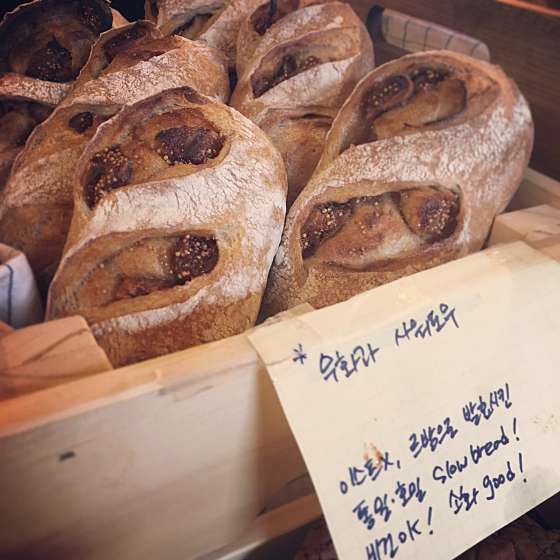 * 무화과 사워도우
이스트X, 르방으로 발효시킨
통밀·호밀 Slow bread!
소화 good!